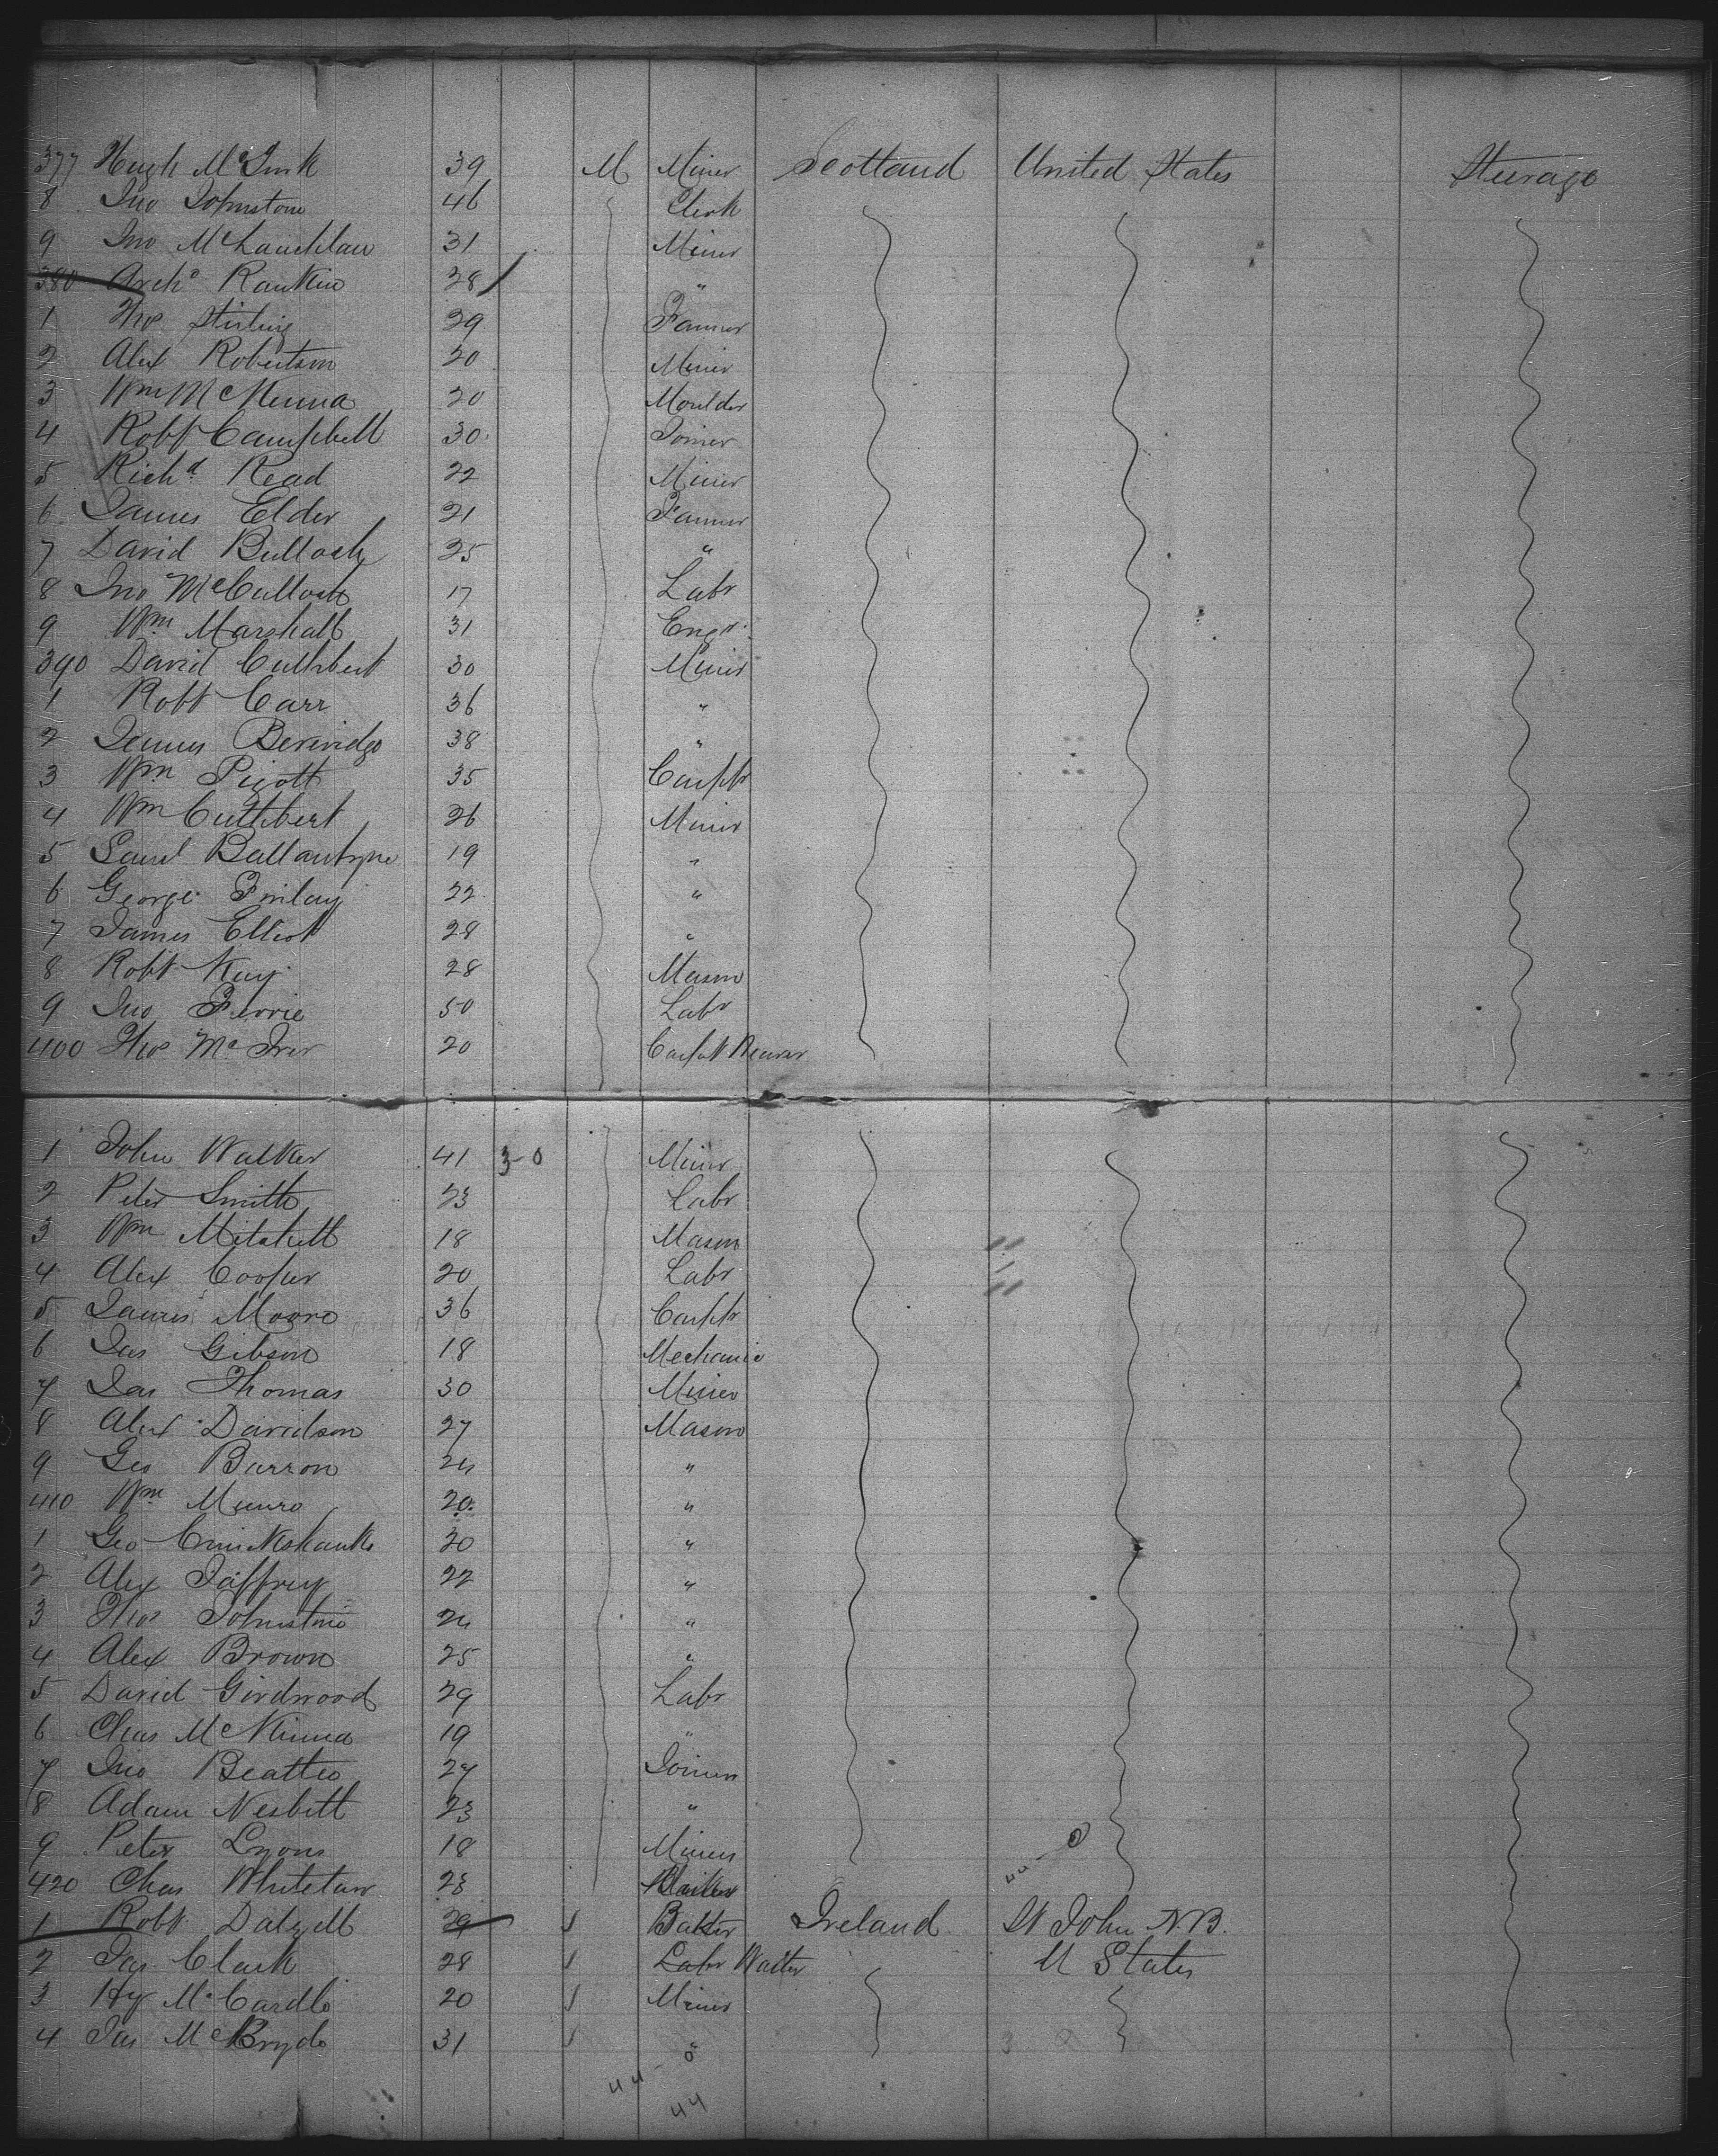 377 Hugh McGurk 39 M Miner Scotland United States Steerage
8 Jno Johnstone 46 Clerk
9 Jno McLauchlan 31 Miner
380 Archd Rankin 28 "
1 Thos Stirling 29 Farmer
2 Alex Robertson 20 Miner
3 Wm McKenna 20 Moulder
4 Robt Campbell 30 Joiner
5 Richd Read 22 Miner
6 James Elder 21 Farmer
7 David Bulloch 25 "
8 Jno McCulloch 17 Labr
9 Wm Marshall 31 Engr
390 David Cuthbert 30 Miner
1 Robt Carr 36 "
2 James Beveridge 38 "
3 Wm Pigott 35 Carptr
4 Wm Cuthbert 26 Miner
5 Saml Ballantyne 19 "
6 George Finlay 22 "
7 James Elliot 28 "
8 Robt Kay 28 Mason
9 Jno Ferrie 50 Labr
400 Thos McIver 20 Carpet Weaver
1 John Walker 41 3-0 Miner
2 Peter Smith 23 Labr
3 Wm Mitchell 18 Mason
4 Alex Cooper 20 Labr
5 James Moore 36 Carptr
6 Jas Gibson 18 Mechanic
7 Jas Thomas 30 Miner
8 Alex Davidson 27 Mason
9 Geo Barron 24 "
410 Wm Munro 20 "
1 Geo Cruickshanks 20 "
2 Alex Jaffrey 22 "
3 Thos Johnstone 24 "
4 Alex Brown 25 "
5 David Girdwood 29 Labr
6 Chas McKinna 19 "
7 Jno Beattie 27 Joiner
8 Adam Nesbitt 23 "
9 Peter Lyons 18 Miner
420 Chas Whitelaw 23 44-0
1 Robt Dalzell 29 S Baker Ireland St John N.B.
2 Jas Clark 28 S Labr Waiter U States
3 Hy McCardle 20 S Miner
4 Jas McBryde 31 S "
44-0
44